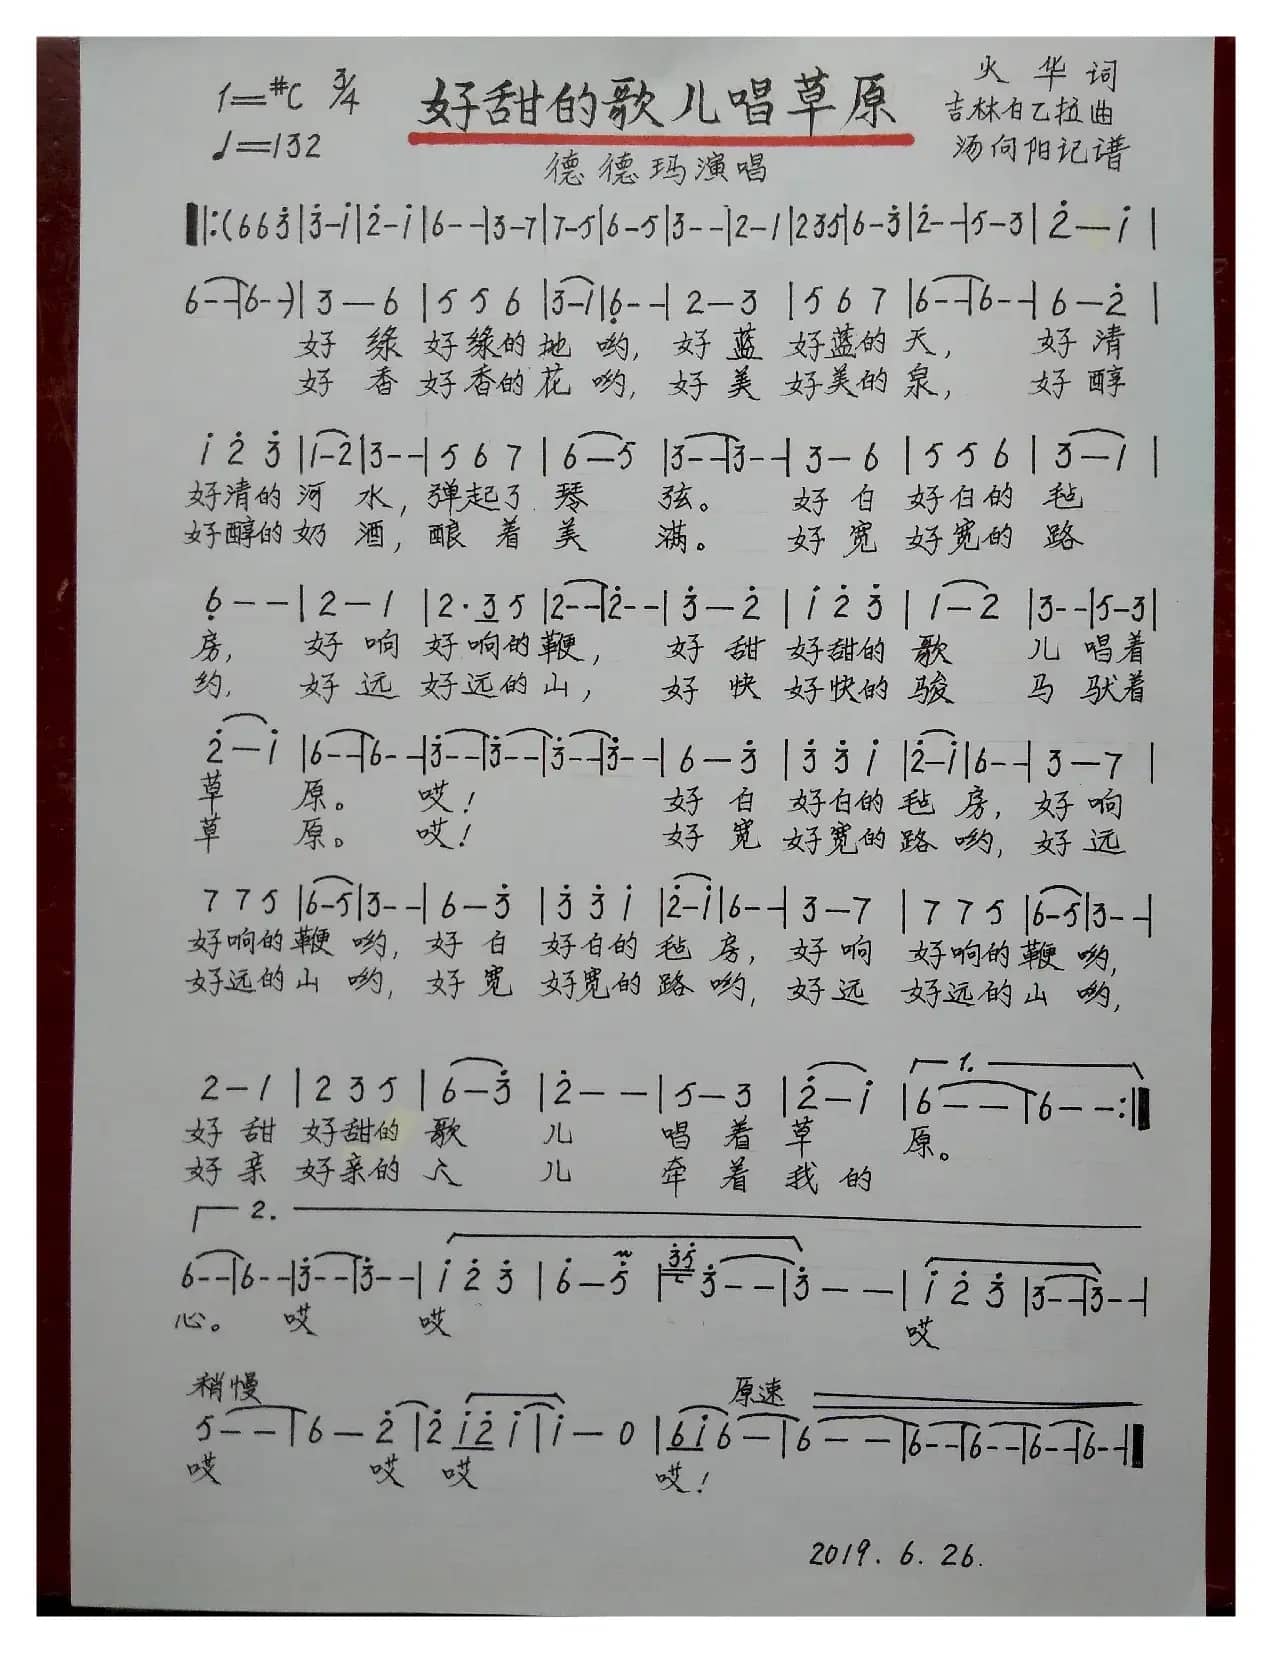 1=#C 3/4
♩=132
好甜的歌儿唱草原
火 华 词
吉林白乙拉曲
汤向阳记谱
德德玛演唱
‖:(6 6 3̇|3̇-1̇|2̇-1̇|6--|3-7|7-5|6-5|3--|2-1|2 3 5|6-3̇|2̇--|5-3|2̇-1̇|
6--|6--)|3-6|5 5 6|3-1|6̣--|2-3|5 6 7|6--|6--|6-2̇|
好 绿 好绿的 地 哟, 好 蓝 好蓝的 天, 好 清
好 香 好香的 花 哟, 好 美 好美的 泉, 好 醇
1̇ 2̇ 3̇|1-2|3--|5 6 7|6-5|3--|3--|3-6|5 5 6|3-1|
好清的 河 水, 弹起了 琴 弦。 好 白 好白的 毡
好醇的 奶 酒, 酿 着 美 满。 好 宽 好宽的 路
6̣--|2-1|2·3 5|2--|2--|3̇-2̇|1̇ 2̇ 3̇|1-2|3--|5-3|
房, 好 响 好响的鞭, 好 甜 好甜的 歌 儿 唱着
约, 好 远 好远的山, 好 快 好快的 骏 马 驮着
2̇-1̇|6--|6--|3̇--|3̇--|3̇--|3̇--|6-3̇|3̇ 3̇ 1̇|2̇-1̇|6--|3-7|
草 原。 哎! 好 白 好白的 毡 房, 好 响
草 原。 哎! 好 宽 好宽的 路 哟, 好 远
7 7 5|6-5|3--|6-3̇|3̇ 3̇ 1̇|2̇-1̇|6--|3-7|7 7 5|6-5|3--|
好响的鞭 哟, 好 白 好白的 毡 房, 好 响 好响的鞭 哟,
好远的山 哟, 好 宽 好宽的 路 哟, 好 远 好远的山 哟,
1.
2-1|2 3 5|6-3̇|2̇--|5-3|2̇-1̇|6--|6--:‖
好 甜 好甜的 歌 儿 唱 着 草 原。
好 亲 好亲的 人 儿 牵 着 我 的
2.
6--|6--|3̇--|3̇--|1̇ 2̇ 3̇|6̇-5̇|3̇5̇ 3̇--|3̇--|1̇ 2̇ 3̇|3--|3--|
心。 哎 哎 哎
稍慢 原速
5--|6-2̇|2̇ 1̇2̇ 1̇|1̇-0|61̇ 6-|6--|6--|6--|6--|6--‖
哎 哎 哎 哎!
2019.6.26.